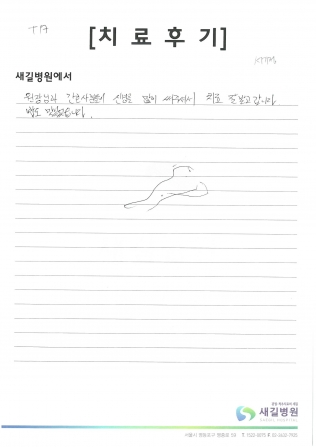 TA
[치 료 후 기]
새길병원에서
원장님과 간호사분들이 신경을 많이 써주셔서 치료 잘 받고 갑니다
밥도 맛있습니다.
새길병원